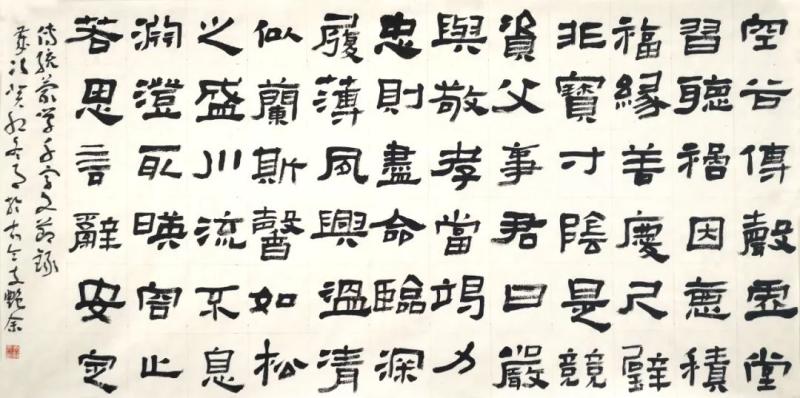 空谷傳聲虛堂
習聽禍因惡積
福緣善慶尺璧
非寶寸陰是競
資父事君曰嚴
與敬孝當竭力
忠則盡命臨深
履薄夙興溫清
似蘭斯馨如松
之盛川流不息
淵澄取暎容止
若思言辭安定
傳統蒙學千字文節錄
歲次癸卯冬月於